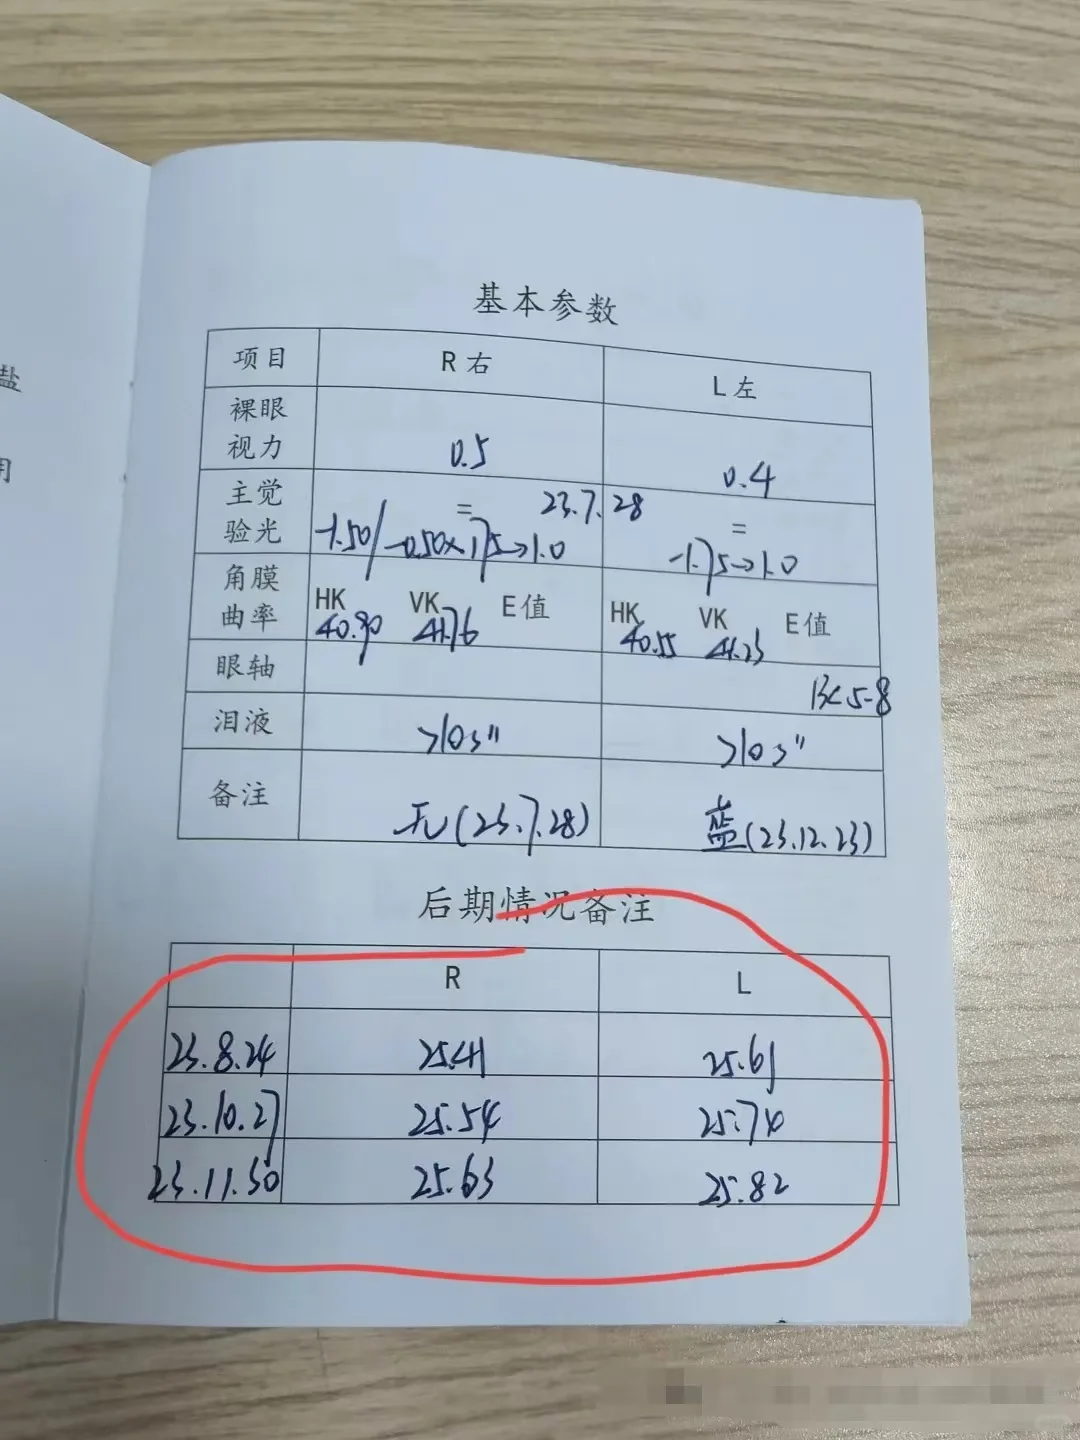 盐
用
基本参数
项目 R 右 L 左
裸眼视力 0.5 0.4
主觉验光 = 23.7.28 =
-1.50/-0.50×175→1.0 -1.75→1.0
角膜曲率 HK VK E值 HK VK E值
40.90 41.76 40.55 41.23
眼轴 BC 5-8
泪液 >10s" >10s"
备注 无(23.7.28) 蓝(23.12.23)
后期情况备注
R L
23.8.24 25.41 25.61
23.10.27 25.54 25.74
23.11.30 25.63 25.82